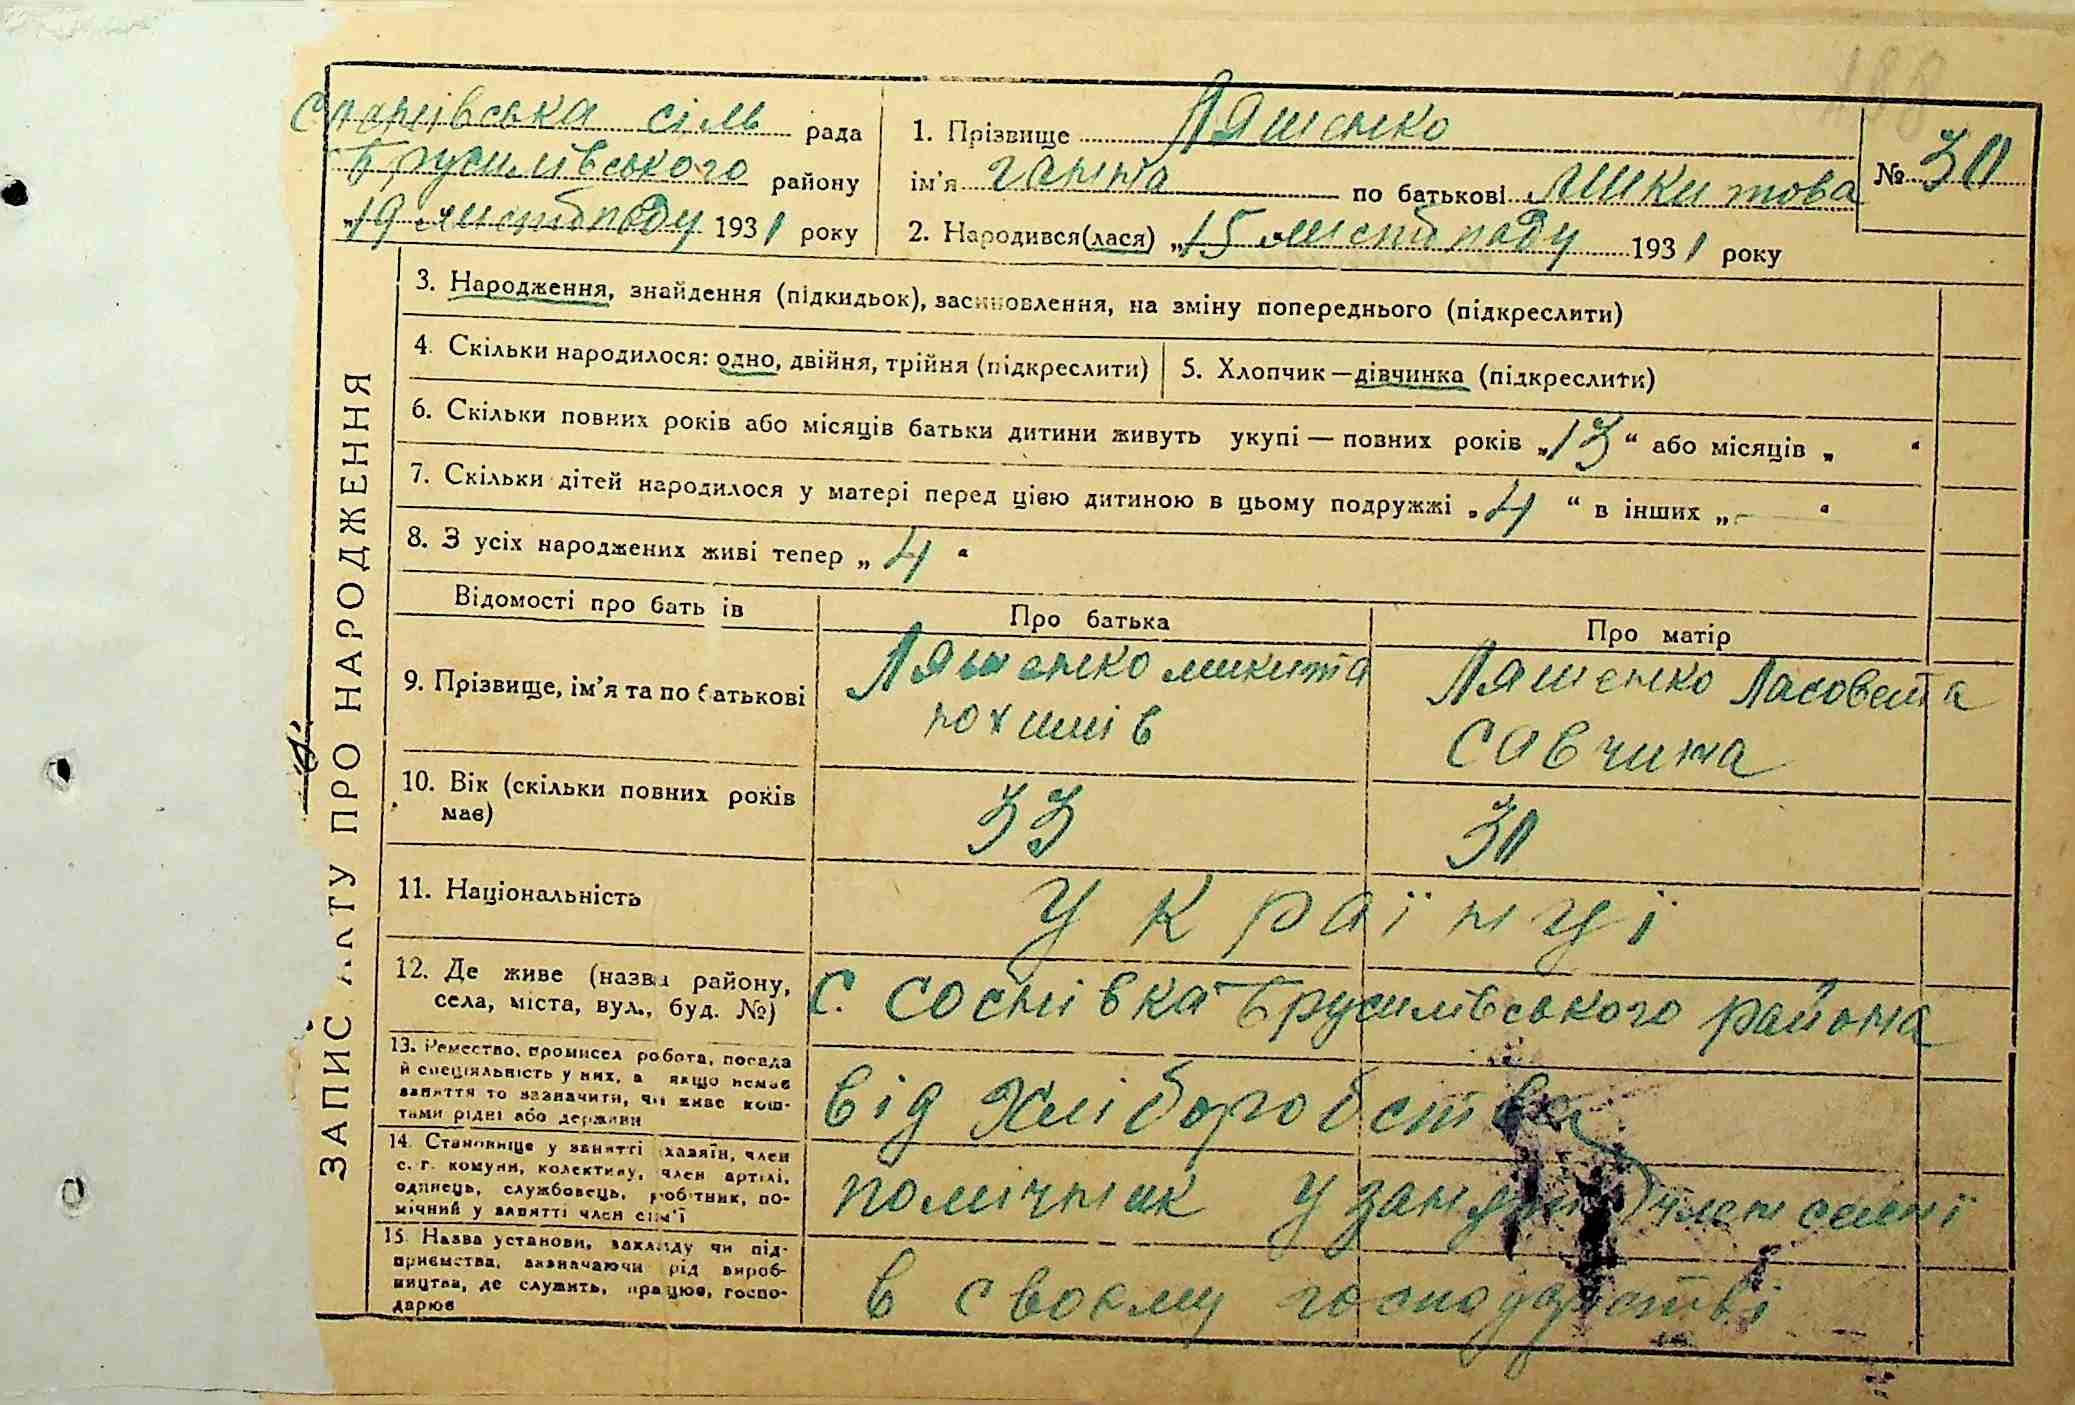 188
рада
Брусилівського району
„19 листопаду 1931 року
1. Прізвище Ляшенко
ім'я Ганна по батькові Микитова
№ 30
2. Народився(лася) „15 листопаду 1931 року
3. Народження, знайдення (підкидьок), засиновлення, на зміну попереднього (підкреслити)
4. Скільки народилося: одно, двійня, трійня (підкреслити)
5. Хлопчик—дівчинка (підкреслити)
6. Скільки повних років або місяців батьки дитини живуть укупі — повних років „13“ або місяців „ “
7. Скільки дітей народилося у матері перед цією дитиною в цьому подружжі „4“ в інших „—“
8. З усіх народжених живі тепер „4“
ЗАПИС АКТУ ПРО НАРОДЖЕННЯ
Відомості про батьків
Про батька
Про матір
9. Прізвище, ім'я та по батькові
Ляшенко Микита
Ляшенко Ласовета
Савчина
10. Вік (скільки повних років
має)
33
30
11. Національність
Українці
12. Де живе (назва району,
села, міста, вул., буд. №)
с. Соснівка Брусилівського района
13. Ремество, промисел робота, посада
й спеціяльність у них, а якщо немає
заняття то зазначити, чи живе кош-
тами рідні або держави
від хліборобства
14. Становище у занятті хазяїн, член
с. г. комуни, колективу, член артілі,
одинець, службовець, робітник, по-
мічний у занятті член сім'ї
помічник у занятті член семї
15. Назва установи, закладу чи під-
приємства, зазначаючи рід вироб-
ництва, де служить, працює, госпо-
дарює
в своєму господарстві